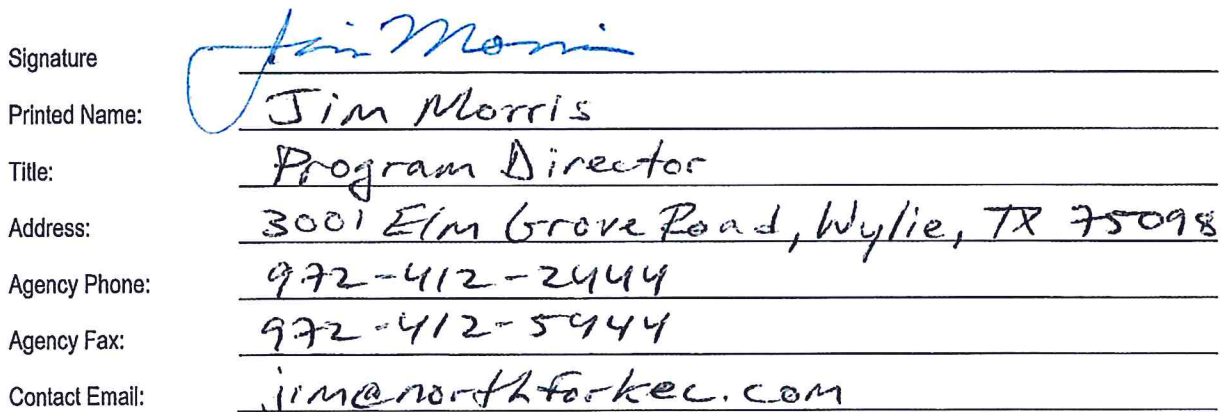 Signature Jim Morris
Printed Name: Jim Morris
Title: Program Director
Address: 3001 Elm Grove Road, Wylie, TX 75098
Agency Phone: 972-412-2444
Agency Fax: 972-412-5444
Contact Email: jim@northforkec.com